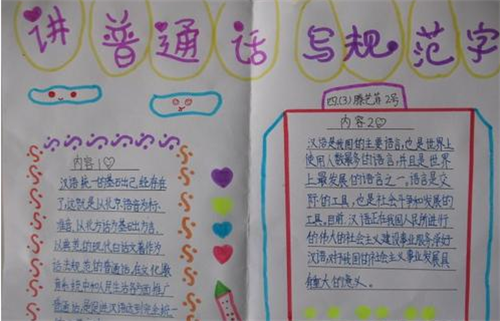 讲普通话 写规范字
内容1
汉语统一的基础已经存在
了,这就是以北京语音为标
准音,以北方话为基础方言,
以典范的现代白话文著作为
语法规范的普通话,在文化教
育系统中和人民生活各方面推广
普通话,是促进汉语达到完全统一
四.(3)
2号
内容2
汉语是我国的主要语言,也是世界上
使用人数最多的语言,并且是世界
上最发展的语言之一。语言是交
际的工具,也是社会斗争和发展的
工具,目前,汉语正在为我国人民所进行
的伟大的社会主义建设事业服务,学好
汉语,对于我国的社会主义事业发展具
有重大的意义。